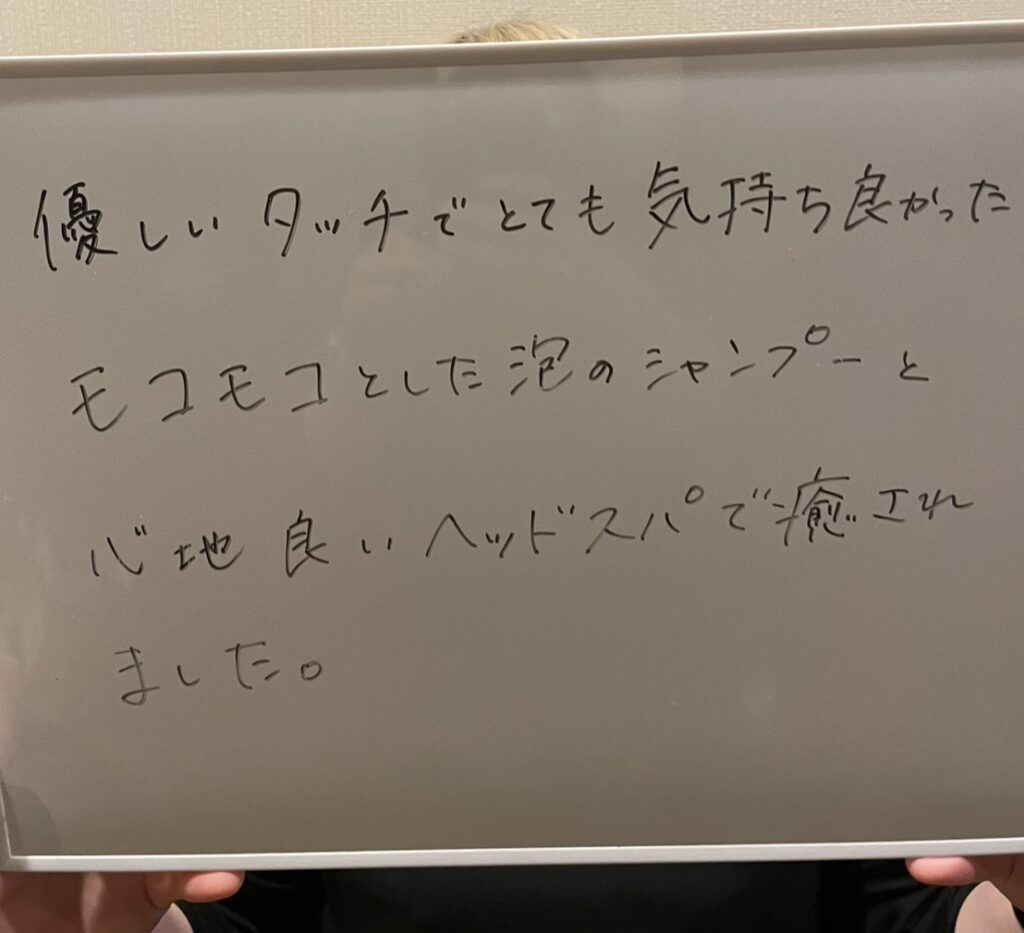 優しいタッチでとても気持ち良かった
モコモコとした泡のシャンプーと
心地良いヘッドスパで癒され
ました。